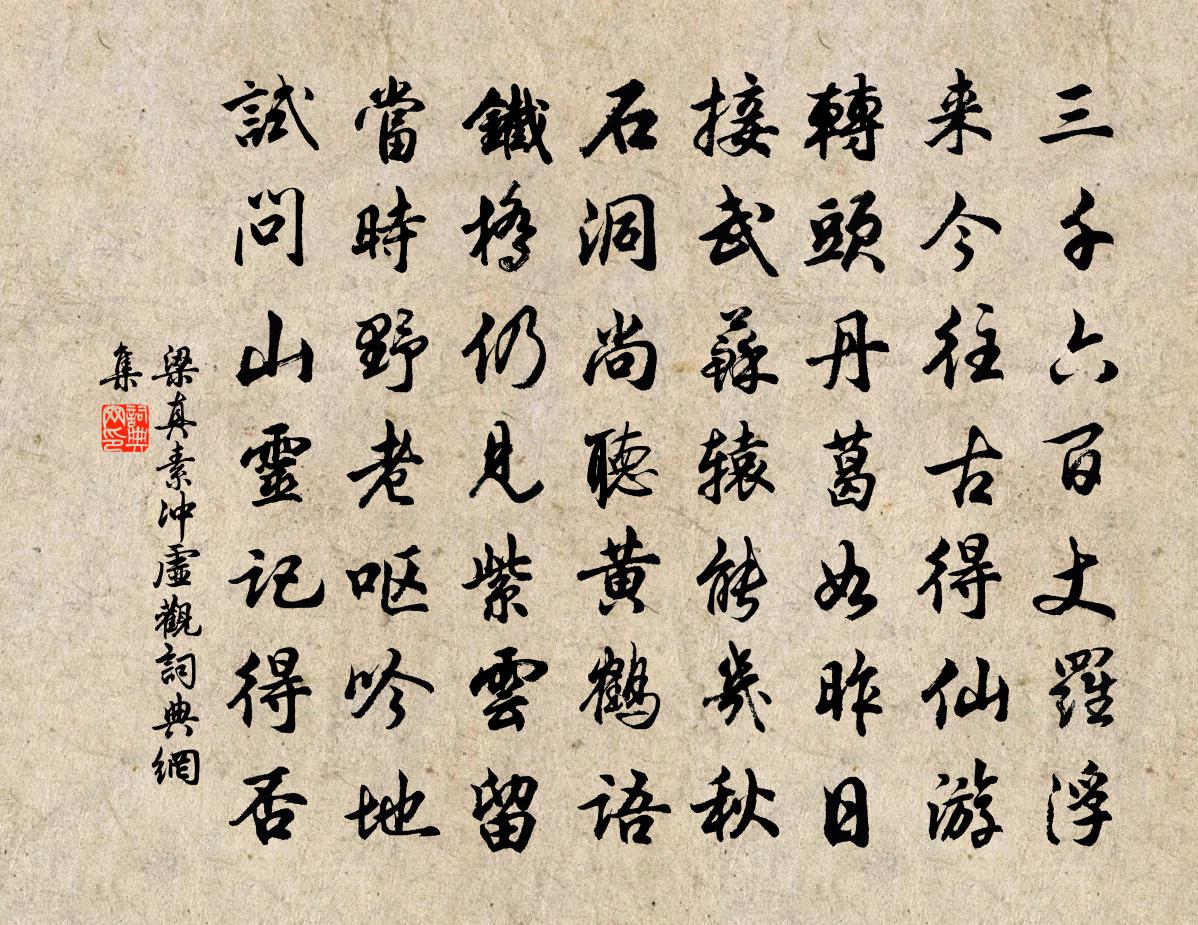 三千六百丈羅浮
来今往古得仙游
轉頭丹葛如昨日
接武蘇辕能幾秋
石洞尚聽黄鶴語
鐵橋仍見紫雲留
當時野老呕吟地
試問山靈記得否
梁真素冲虛觀詞典網
集
詞典
网印